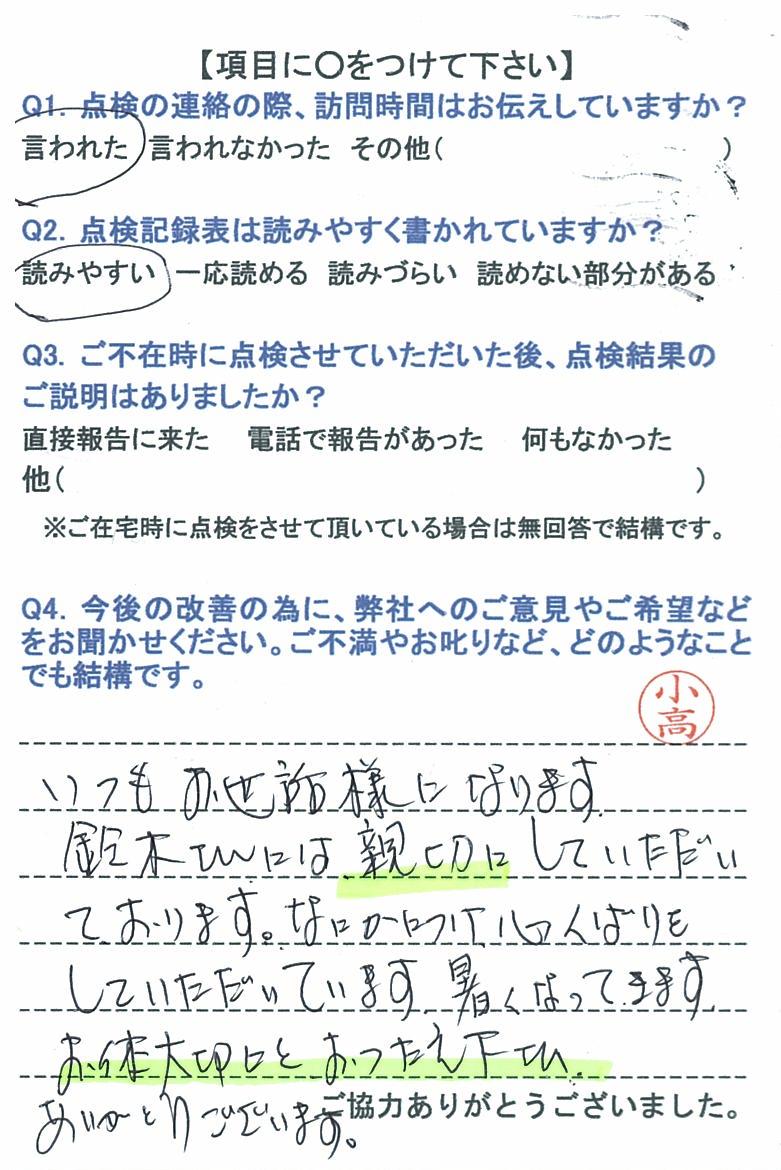 【項目に〇をつけて下さい】
Q1. 点検の連絡の際、訪問時間はお伝えしていますか？
言われた 言われなかった その他( )
Q2. 点検記録表は読みやすく書かれていますか？
読みやすい 一応読める 読みづらい 読めない部分がある
Q3. ご不在時に点検させていただいた後、点検結果の
ご説明はありましたか？
直接報告に来た 電話で報告があった 何もなかった
他( )
※ご在宅時に点検をさせて頂いている場合は無回答で結構です。
Q4. 今後の改善の為に、弊社へのご意見やご希望など
をお聞かせください。ご不満やお叱りなど、どのようなこと
でも結構です。
小高
いつもお世話様になります
鈴木さんには親切にしていただい
ております。なにかにつけ心くばりを
していただいています。暑くなってきます。
お体大切にとおつたえ下さい。
ありがとうございます。
ご協力ありがとうございました。